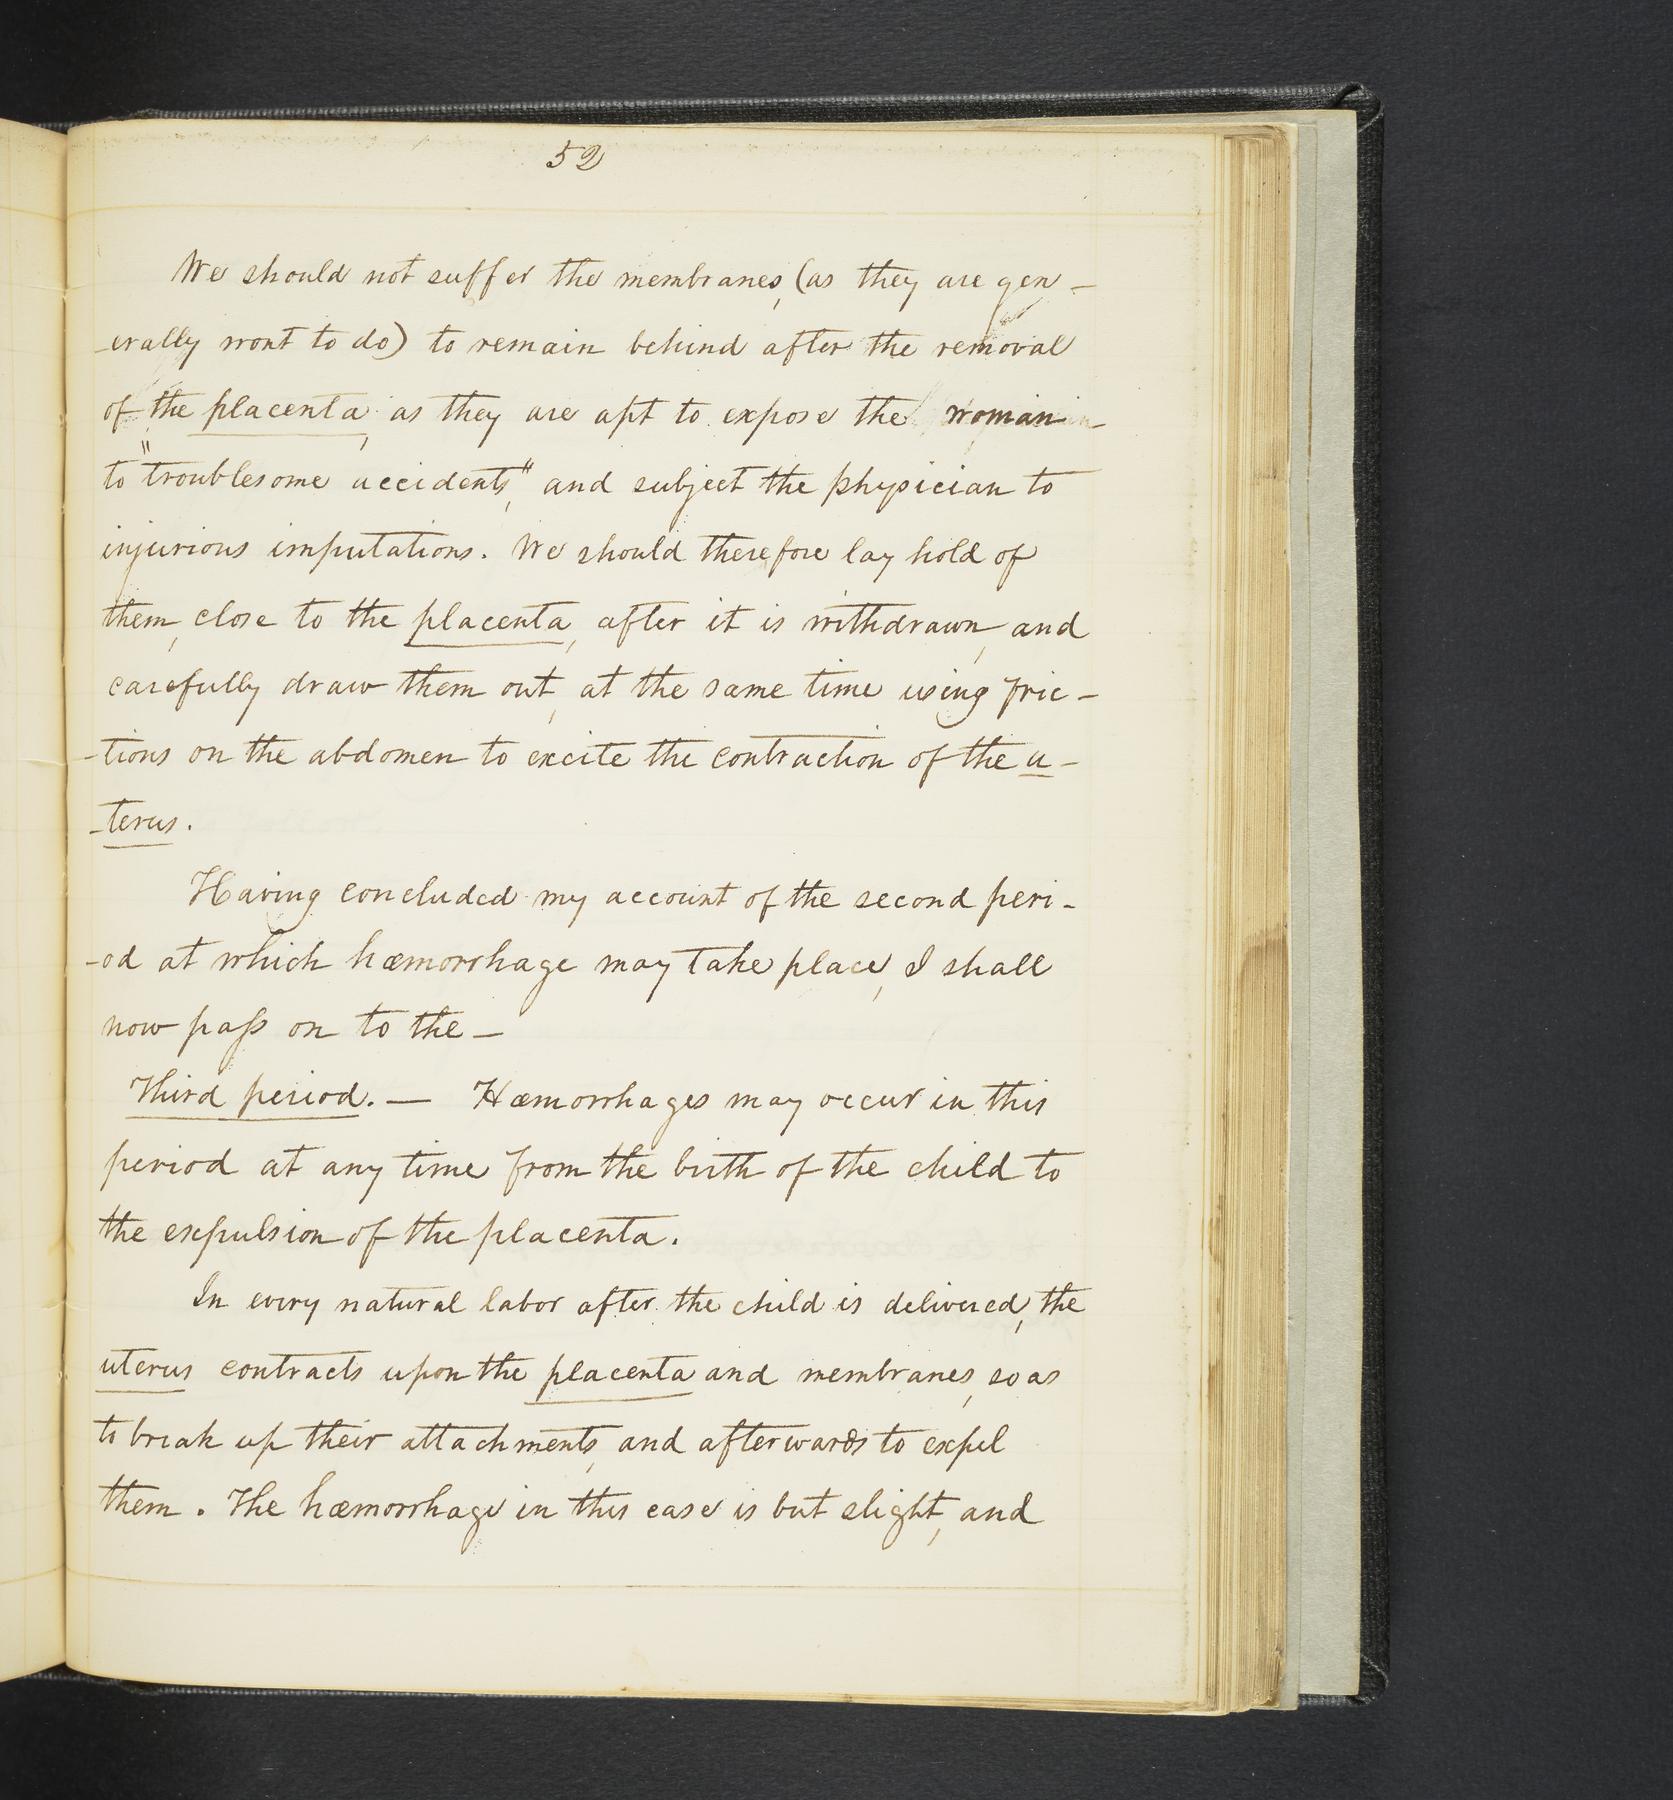 52
We should not suffer the membranes, (as they are gen-
-erally wont to do) to remain behind after the removal
of the placenta, as they are apt to expose the woman
to "troublesome accidents", and subject the physician to
injurious imputations. We should therefore lay hold of
them, close to the placenta, after it is withdrawn, and
carefully draw them out, at the same time using fric-
-tions on the abdomen to excite the contraction of the u-
-terus.
Having concluded my account of the second peri-
-od at which hæmorrhage may take place, I shall
now paſs on to the —
Third period. — Hæmorrhages may occur in this
period at any time from the birth of the child to
the expulsion of the placenta.
In every natural labor after the child is delivered, the
uterus contracts upon the placenta and membranes, so as
to break up their attachments, and afterwards to expel
them. The hæmorrhage in this case is but slight, and